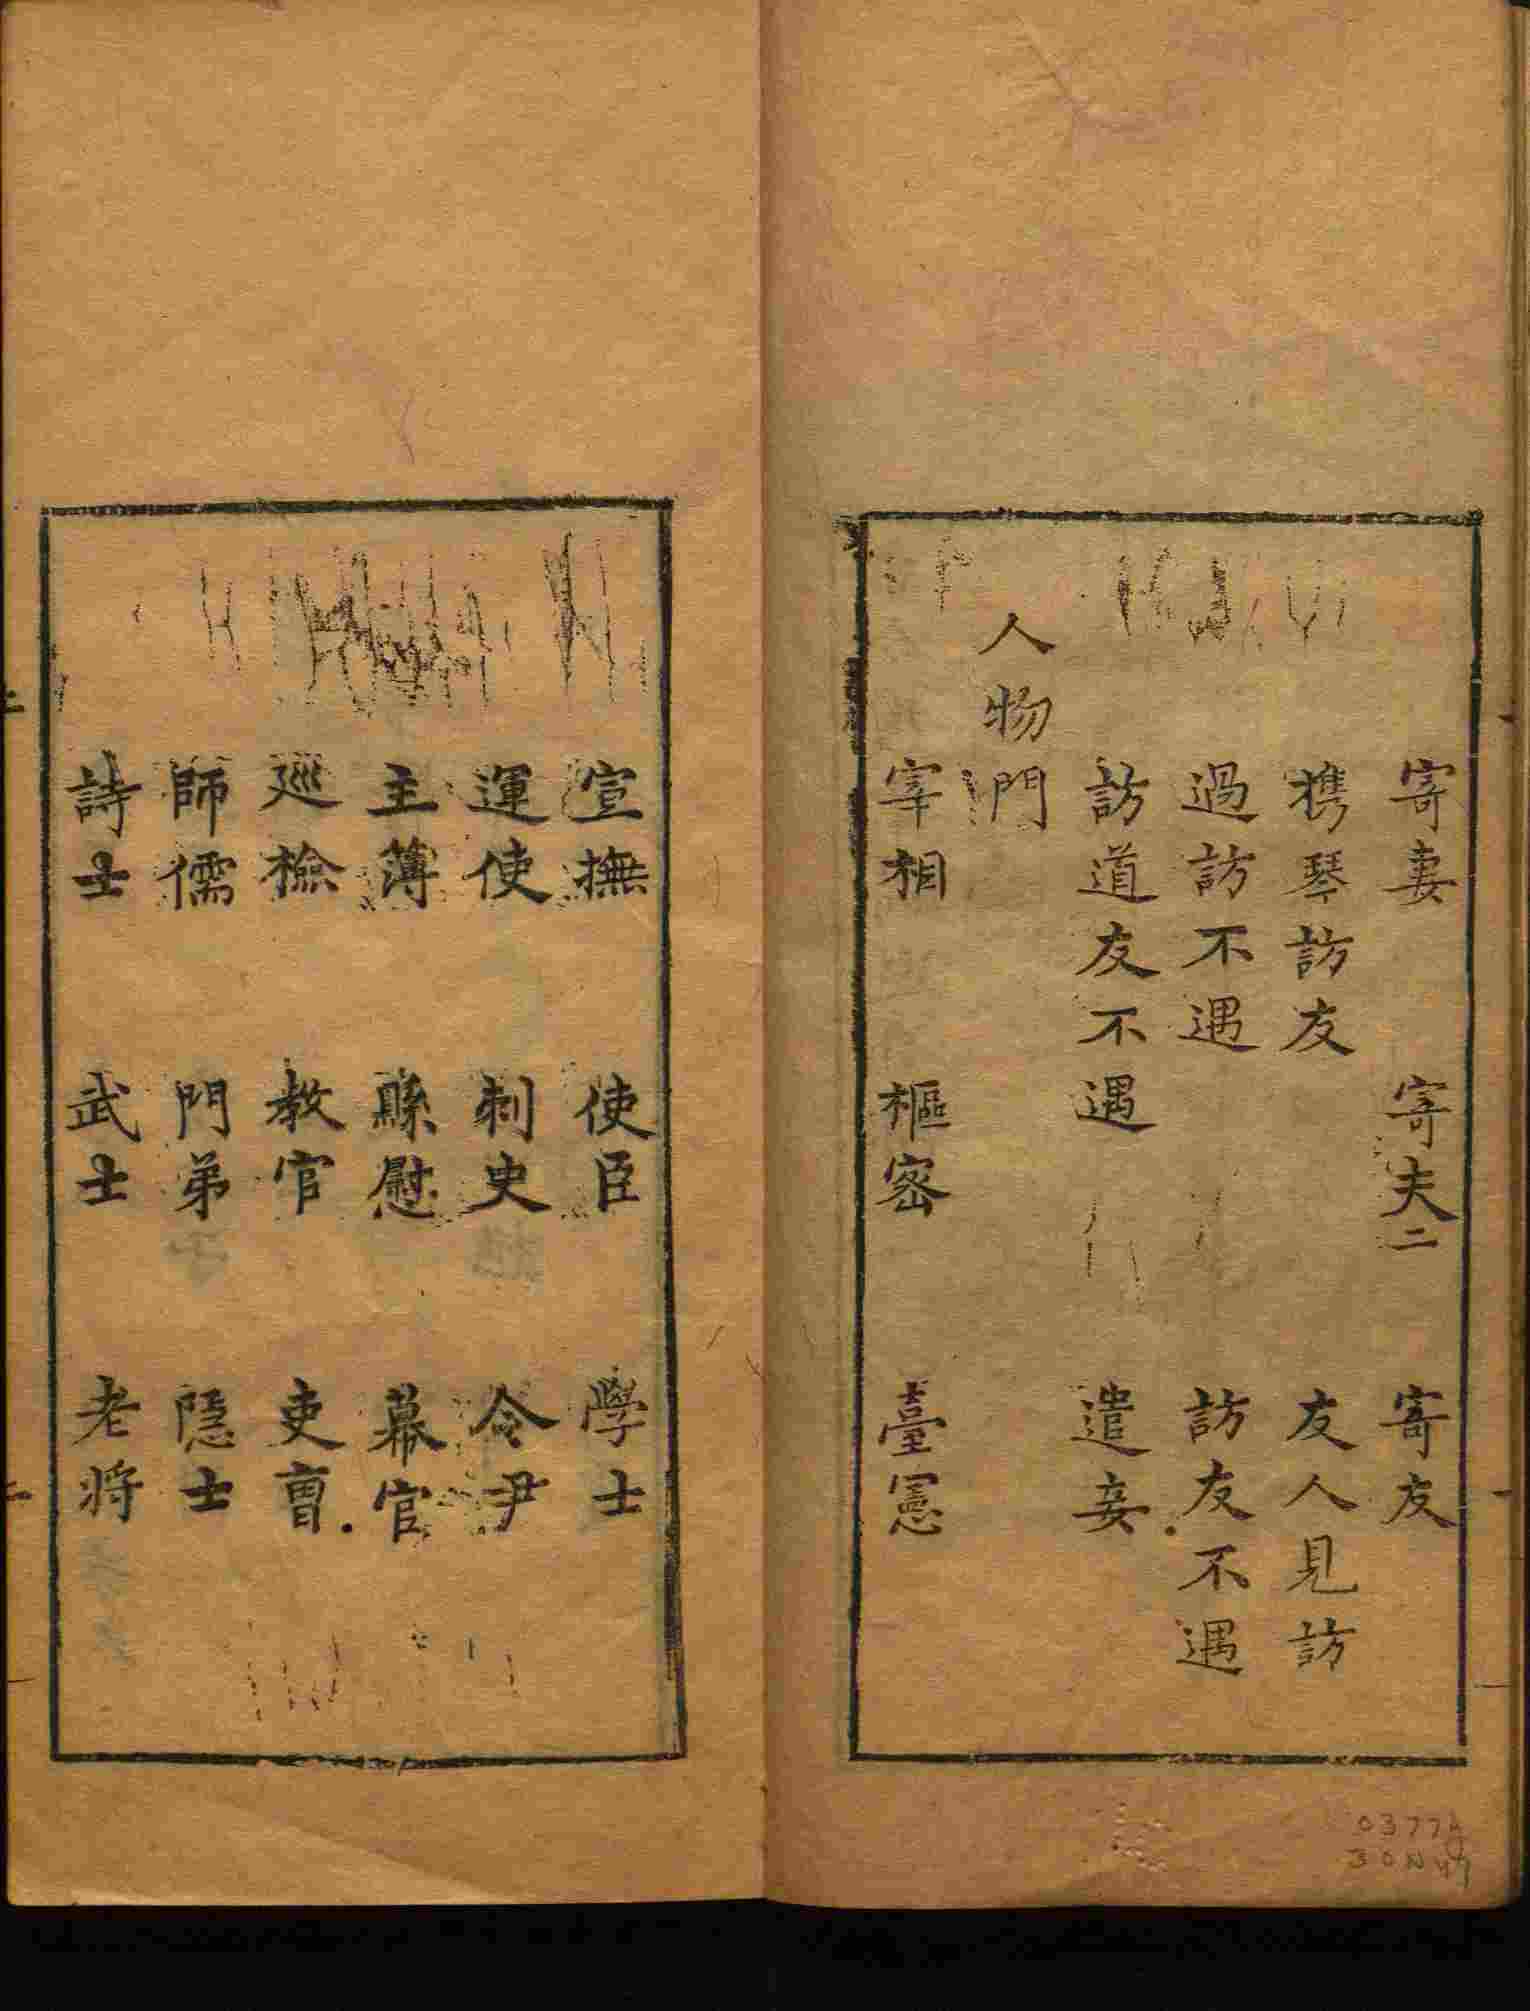 寄妻 寄夫二 寄友
携琴訪友 友人見訪
過訪不遇 訪友不遇
訪道友不遇 遣妾
人物門
宰相 樞密 臺憲
宣撫 使臣 學士
運使 刺史 令尹
主簿 縣慰 幕官
廵檢 教官 吏曺
師儒 門弟 隱士
詩士 武士 老将